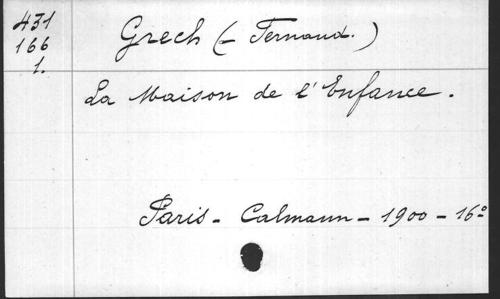 431
166
1.
Grech (- Fernand.)
La Maison de l'Enfance.
Paris - Calmann - 1900 - 16º